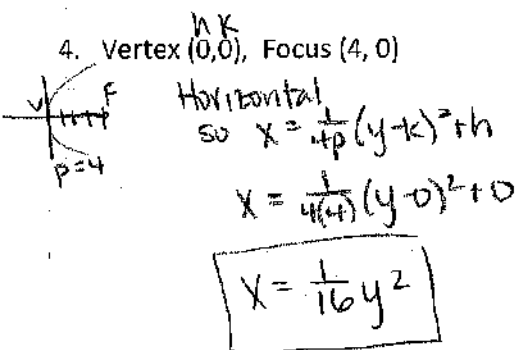 h k
4. Vertex (0,0), Focus (4, 0)
V F
p=4
Horizontal
so x = 1/4p (y-k)² + h
x = 1/4(4) (y-0)² + 0
x = 1/16 y²